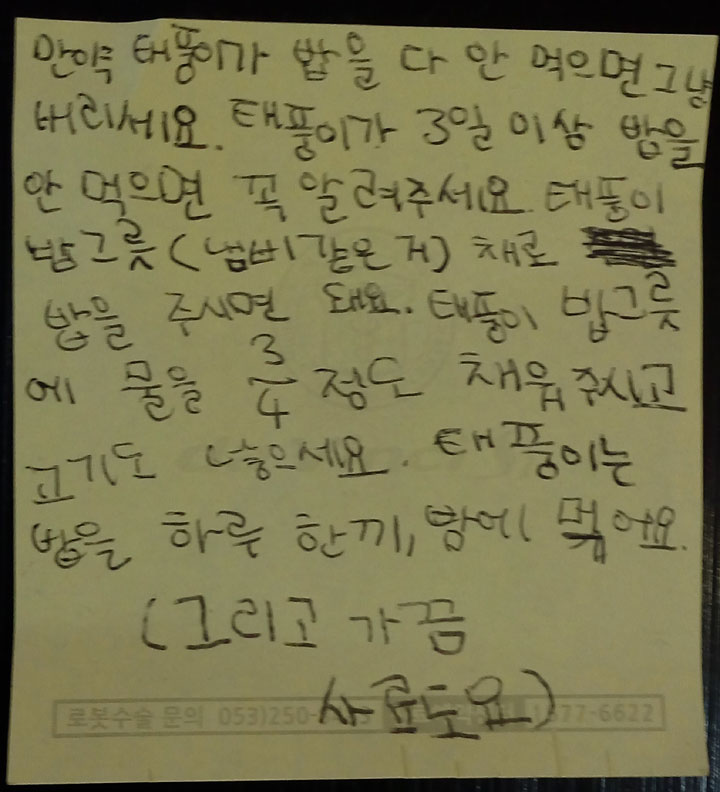 만약 태풍이가 밥을 다 안 먹으면 그냥
버리세요. 태풍이가 3일 이상 밥을
안 먹으면 꼭 알려주세요. 태풍이
밥그릇(냄비같은거) 채로
밥을 주시면 돼요. 태풍이 밥그릇
에 물을 3/4 정도 채워주시고
고기도 넣으세요. 태풍이는
밥을 하루 한끼, 밤에 먹어요.
(그리고 가끔
사료도요)
로봇수술 문의 053)250- 77-6622